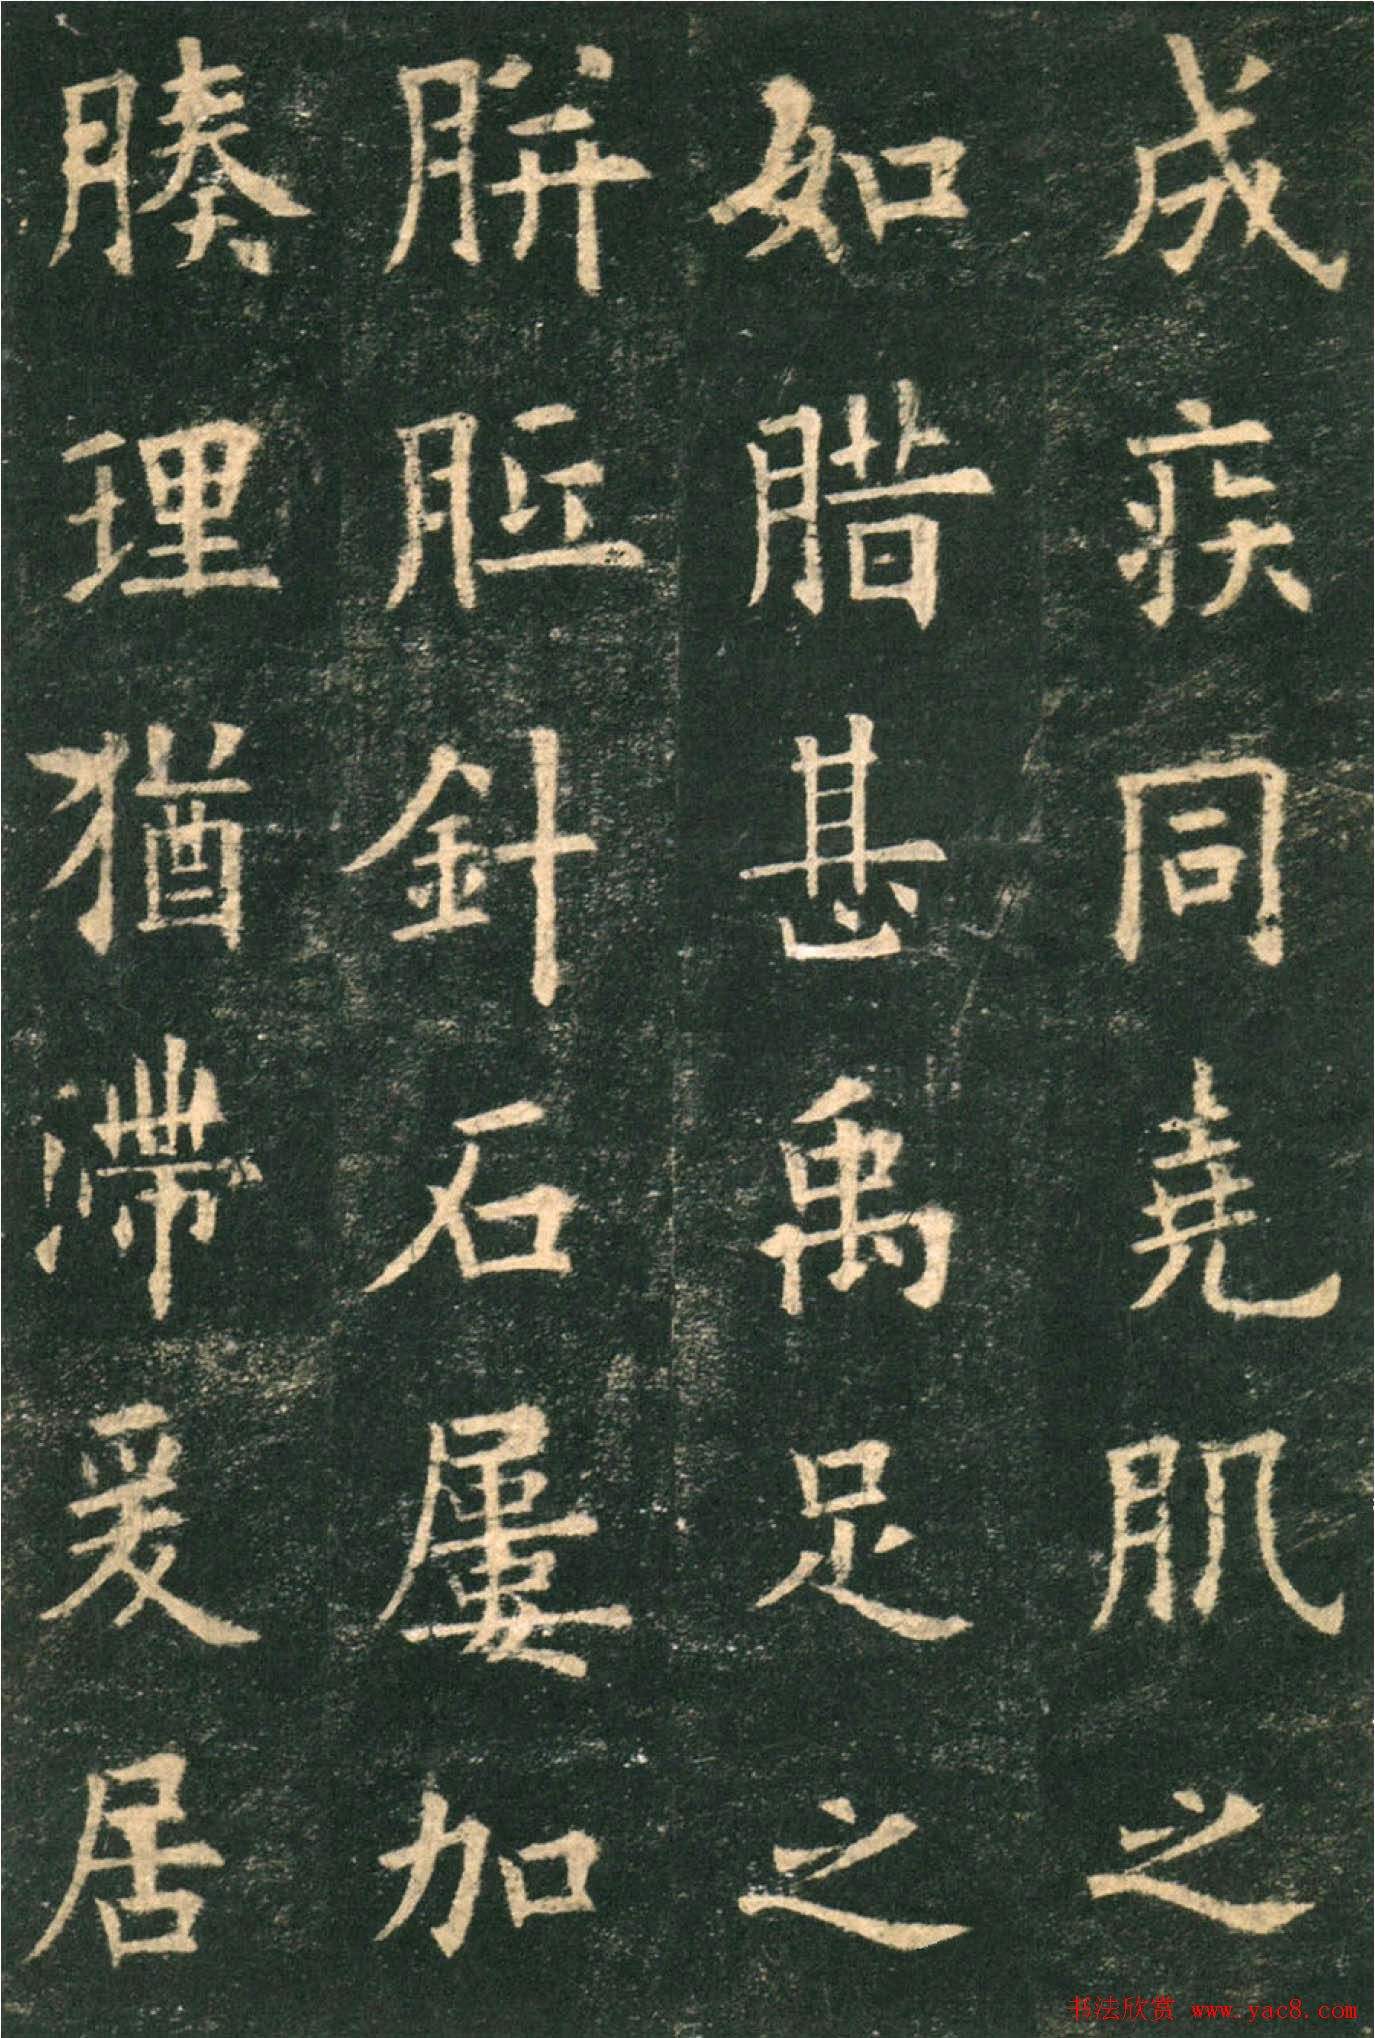 成疾同堯肌之
如腊甚禹足之
胼胝針石屢加
腠理猶滯爰居
书法欣赏 www.yac8.com